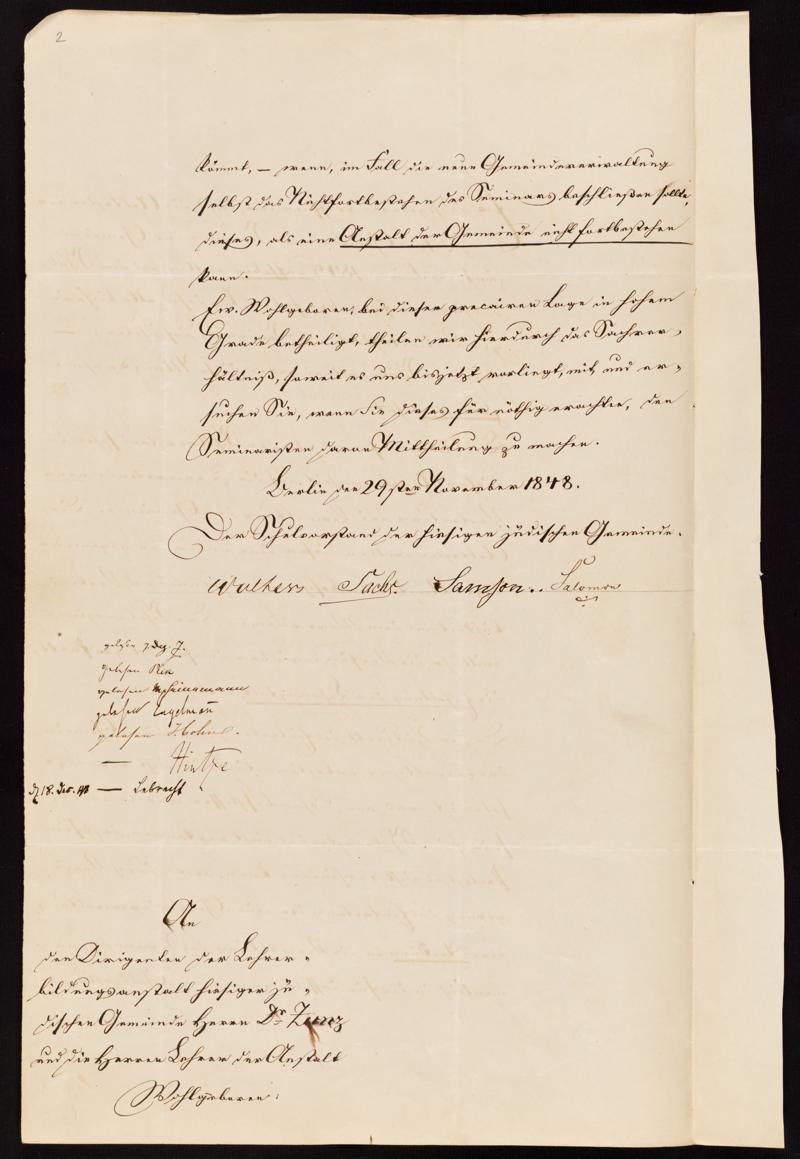 2
kömmt, — wenn, im Fall die neue Gemeindeverwaltung
selbst das Nichtfortbestehen des Seminars beschließen sollte,
dieses, als eine Anstalt der Gemeinde nicht fortbestehen
kann.
Ew. Wohlgeboren, bei dieser precairen Lage in hohem
Grade betheiligt, theilen wir hierdurch das Sachver-
hältniß, soweit es uns bis jetzt vorliegt, mit, und er-
suchen Sie, wenn Sie dieses für nöthig erachten, den
Seminaristen davon Mittheilung zu machen.
Berlin den 29sten November 1848.
Der Schulvorstand der hiesigen jüdischen Gemeinde.
Wolkers Sachs. Samson.. Salomon
gelesen 7. Dez. Z.
gelesen
gelesen
gelesen Engelmann
gelesen
— Hintze
d 18. Dec. 48 — Lebrecht
An
den Dirigenten der Lehrer-
bildungsanstalt hiesiger jü-
dischen Gemeinde Herrn Dr. Zunz
und die Herren Lehrer der Anstalt
Wohlgeboren.